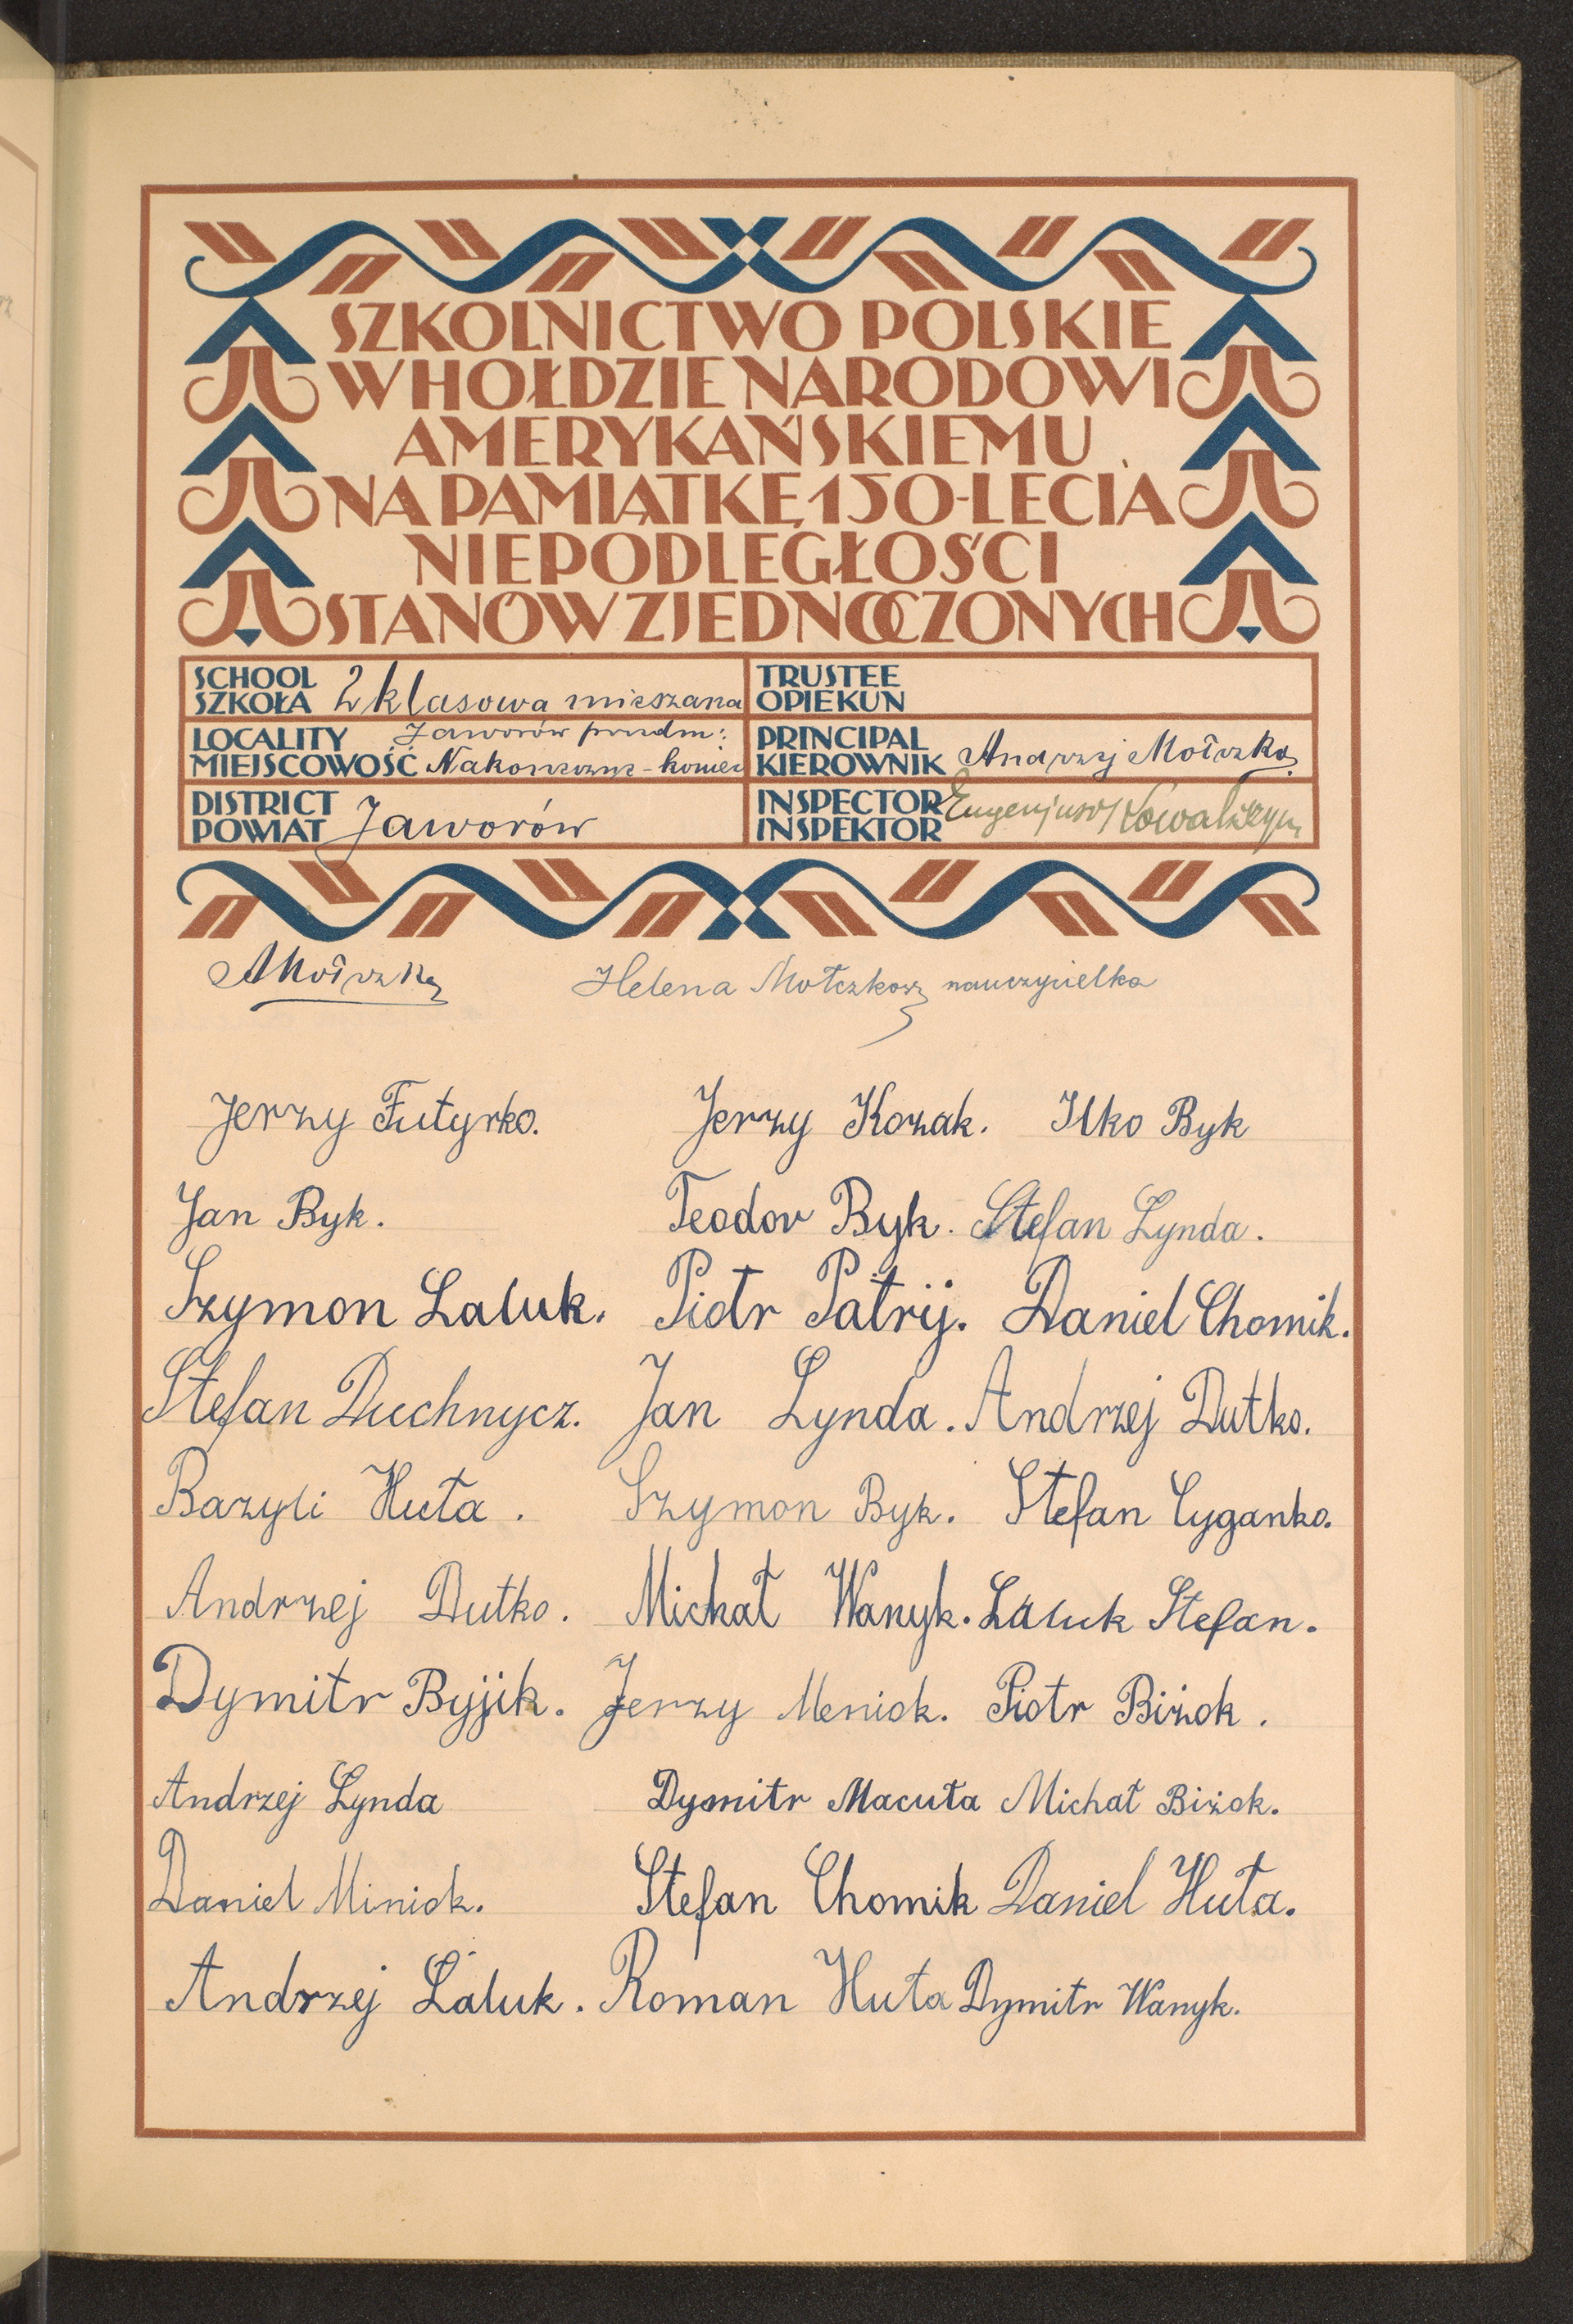 SZKOLNICTWO POLSKIE
W HOŁDZIE NARODOWI
AMERYKAŃSKIEMU
NA PAMIĄTKĘ 150-LECIA
NIEPODLEGŁOŚCI
STANÓW ZJEDNOCZONYCH
SCHOOL
SZKOŁA 2 klasowa mieszana
LOCALITY Jaworów przedm:
MIEJSCOWOŚĆ Nakoneczne-koniec
DISTRICT
POWIAT Jaworów
TRUSTEE
OPIEKUN
PRINCIPAL
KIEROWNIK Andrzej Motczko
INSPECTOR
INSPEKTOR Eugenjusz
AMotczko Helena nauczycielka
Jerzy Futyrko. Jerzy Kozak. Ilko Byk
Jan Byk. Teodor Byk. Stefan Lynda.
Szymon Laluk. Piotr Patrij. Daniel Chomik.
Stefan Duchnycz. Jan Lynda. Andrzej Dutko.
Bazyli Huta. Szymon Byk. Stefan Cyganko.
Andrzej Dutko. Michał Wanyk. Laluk Stefan.
Dymitr Byjik. Jerzy Meniok. Piotr Biżok.
Andrzej Lynda Dymitr Macuta Michał Biżok.
Daniel Miniok. Stefan Chomik Daniel Huta.
Andrzej Laluk. Roman Huta Dymitr Wanyk.